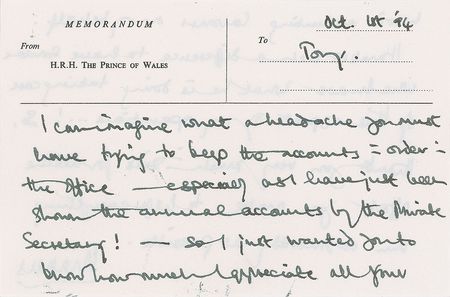 MEMORANDUM
From
H.R.H. THE PRINCE OF WALES
Oct. 1st '94
To
Tony.
I can imagine what a headache you must
have trying to keep the accounts in order in
the Office — especially as I have just been
shown the annual accounts by the Private
Secretary! — so I just wanted you to
know how much I appreciate all your